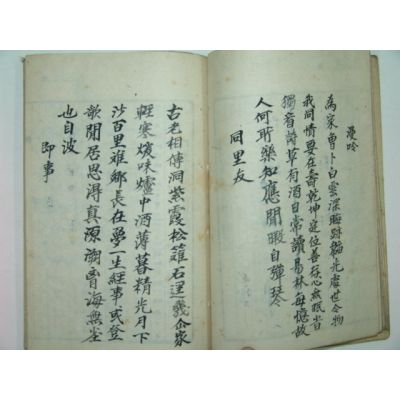 漫吟
為家曾卜白雲深晦跡韜光處世今物
我同情要在奇乾坤定位善在心無眠省
獨看詩草有酒自常讀易林每憶故
人何所樂知應閒暇自彈琴
同里友
古老相傳洞紫霞松籬石逕幾人家
輕寒煖味爐中酒薄暮精光月下
沙百里雖鄉長在夢一生經事或登
歌閒居思得真源潤會海無
也自波
即事